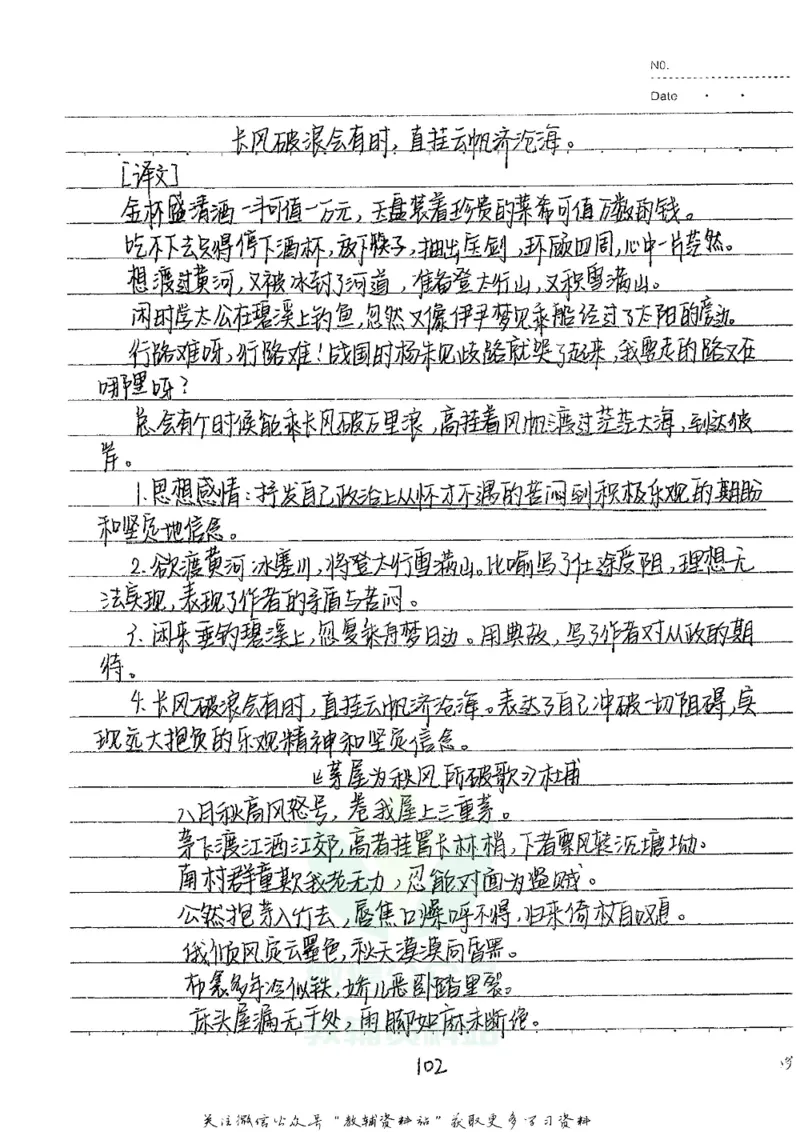 NO.
Date
长风破浪会有时，直挂云帆济沧海。
[译文]
金杯盛清酒一斗可值一万元，玉盘装着珍贵的菜希可值万数的钱。
吃不下去只得停下酒杯，放下筷子，抽出宝剑，环顾四周，心中一片茫然。
想渡过黄河，又被冰封了河道，准备登太行山，又积雪满山。
闲时学太公在碧溪上钓鱼，忽然又像伊尹梦见乘船经过了太阳的旁边。
行路难呀，行路难！战国时杨朱见歧路就哭了起来，我要走的路又在
哪里呀？
总会有个时候能乘长风破万里浪，高挂着风帆渡过茫茫大海，到达彼
岸。
1.思想感情：抒发自己政治上从怀才不遇的苦闷到积极乐观的期盼
和坚定地信念。
2.欲渡黄河冰塞川，将登太行雪满山。比喻写了仕途受阻，理想无
法实现，表现了作者的矛盾与苦闷。
3.闲来垂钓碧溪上，忽复乘舟梦日边。用典故，写了作者对从政的期
待。
4.长风破浪会有时，直挂云帆济沧海。表达了自己冲破一切阻碍，实
现远大抱负的乐观精神和坚定信念。
《茅屋为秋风所破歌》杜甫
八月秋高风怒号，卷我屋上三重茅。
茅飞渡江洒江郊，高者挂罥长林梢，下者飘风转沉塘坳。
南村群童欺我老无力，忍能对面为盗贼。
公然抱茅入竹去，唇焦口燥呼不得，归来倚杖自叹息。
俄倾风定云墨色，秋天漠漠向昏黑。
布衾多年冷似铁，娇儿恶卧踏里裂。
床头屋漏无干处，雨脚如麻未断绝。
102
关注微信公众号"教辅资料站"获取更多学习资料